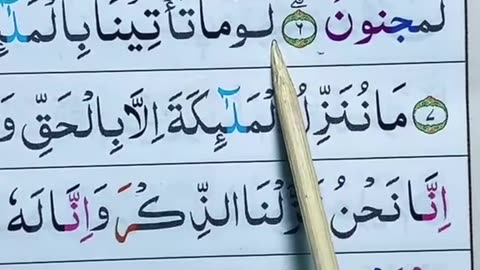 لَمَجْنُونٌ ۝٦ لَوْمَا تَأْتِيْنَا بِالْمَلٰٓئِ
۝٧ مَا نُنَزِّلُ الْمَلٰٓئِكَةَ اِلَّا بِالْحَقِّ وَ
اِنَّا نَحْنُ نَزَّلْنَا الذِّكْرَ وَاِنَّا لَهٗ